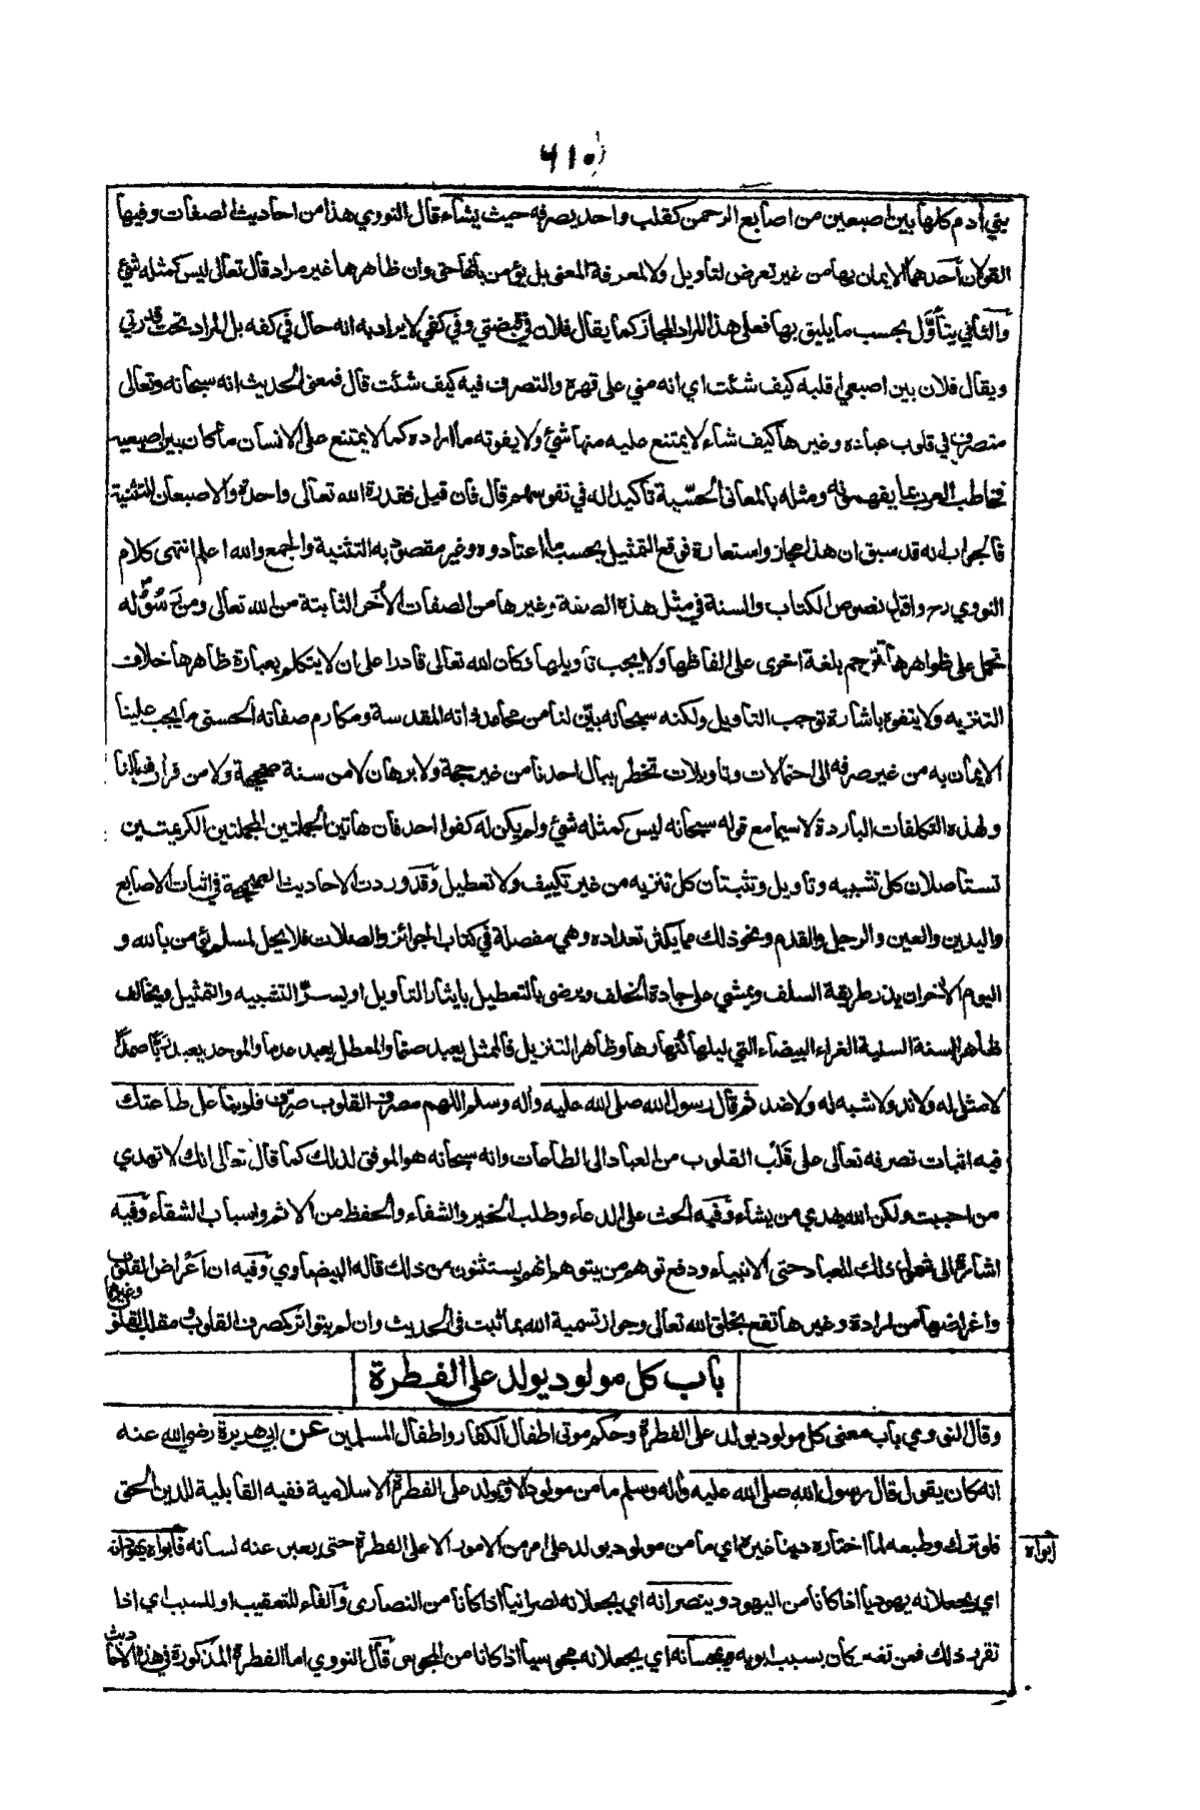 ٦١٥
بني آدم كلها بين اصبعين من اصابع الرحمن كقلب واحد يصرفه حيث يشاء قال النووي هذا من احاديث الصفات وفيها
القولان أحدهما الايمان بها من غير تعرض لتاويل ولا لمعرفة المعنى بل يؤمن بانها حق وان ظاهرها غير مراد قال تعالى ليس كمثله شئ
والثاني يتأول بحسب ما يليق بها فعلى هذا المراد المجاز كما يقال فلان في قبضتي وفي كفي لا يراد به انه حال في كفه بل المراد تحت قدرتي
ويقال فلان بين اصبعي اقلبه كيف شئت اي انه مني على قهره والتصرف فيه كيف شئت قال فمعنى الحديث انه سبحانه وتعالى
متصرف في قلوب عباده وغيرها كيف شاء لا يمتنع عليه منها شئ ولا يفوته ما اراده كما لا يمتنع على الانسان ما كان بين اصبعيه
فخاطب العرب بما يفهمونه ومثله بالمعاني الحسّية تأكيدا له في نفوسهم قال فان قيل فقدرة الله تعالى واحدة والاصبعان للتثنية
فالجواب انه قد سبق ان هذا مجاز واستعارة فوقع التمثيل بحسب ما اعتادوه وغير مقصود به التثنية والجمع والله اعلم انتهى كلام
النووي رح واقول نصوص الكتاب والسنة في مثل هذه الصفة وغيرها من الصفات الأخر الثابتة من الله تعالى ومن رسوله
تحمل على ظواهرها تترجم بلغة اخرى على الفاظها ولا يجب تأويلها وكان الله تعالى قادرا على ان لا يتكلم بعبارة ظاهرها خلاف
التنزيه ولا يتفوه باشارة توجب التاويل ولكنه سبحانه بيّن لنا من محامد ذاته المقدسة ومكارم صفاته الحسنى ما يجب علينا
الايمان به من غير صرفه الى احتمالات وتاويلات تخطر ببال احدنا من غير حجة ولا برهان لا من سنة صحيحة ولا من قران فما لنا
ولهذه التكلفات الباردة لا سيما مع قوله سبحانه ليس كمثله شئ ولم يكن له كفوا احد فان هاتين الجملتين المجملتين الكريمتين
تستأصلان كل تشبيه وتأويل وتثبتان كل تنزيه من غير تكييف ولا تعطيل وقد وردت الاحاديث الصحيحة في اثبات الاصابع
واليدين والعين والرجل والقدم ونحو ذلك مما يكثر تعداده وهي مفصلة في كتاب الجوائز والصلات فلا يحل لمسلم يؤمن بالله و
اليوم الاخر ان يذر طريقة السلف ويمشي على جادة الخلف ويرضى بالتعطيل بايثار التأويل او يسرّ التشبيه والتمثيل ويخالف
ظاهر السنة السنية الغراء البيضاء التي ليلها كنهارها وظاهر التنزيل فالممثل يعبد صنما والمعطل يعبد عدما والموحد يعبد ربًّا صمدًا
لا مثل له ولا ند ولا شبه له ولا ضد ثم قال رسول الله صلى الله عليه وآله وسلم اللهم مصرف القلوب صرّف قلوبنا على طاعتك
فيه اثبات تصرفه تعالى على قلب القلوب من العباد الى الطاعات وانه سبحانه هو الموفق لذلك كما قال تعالى انك لا تهدي
من احببت ولكن الله يهدي من يشاء وفيه الحث على الدعاء وطلب الخير والشفاء والحفظ من الاثم واسباب الشقاء وفيه
اشارة الى شمول ذلك للعباد حتى الانبياء ودفع توهم من يتوهم انهم يستثنون من ذلك قاله البيضاوي وفيه ان أعراض القلوب
وغيرها
واغراضها من ارادة وغيرها تقع بخلق الله تعالى وجواز تسمية الله بما ثبت في الحديث وان لم يتواتر كمصرف القلوب ومقلب القلو
باب كل مولود يولد على الفطرة
وقال النووي باب معنى كل مولود يولد على الفطرة وحكم موتى اطفال الكفار واطفال المسلمين عن ابي هريرة رضي الله عنه
انه كان يقول قال رسول الله صلى الله عليه وآله وسلم ما من مولود الا ويولد على الفطرة الاسلامية ففيه القابلية للدين الحق
فلو ترك وطبعه لما اختار دينا غيره اي ما من مولود يولد على امر من الامور الا على الفطرة حتى يعبر عنه لسانه فابواه يهودانه
ابواه
اي يجعلانه يهوديا اذا كانا من اليهود وينصرانه اي يجعلانه نصرانيا اذا كانا من النصارى والفاء للتعقيب او للسبب اي اذا
تقرر ذلك فمن تغير كان بسبب ابويه ويمجسانه اي يجعلانه مجوسيا اذا كانا من المجوس قال النووي اما الفطرة المذكورة في هذه الاحا
ديث